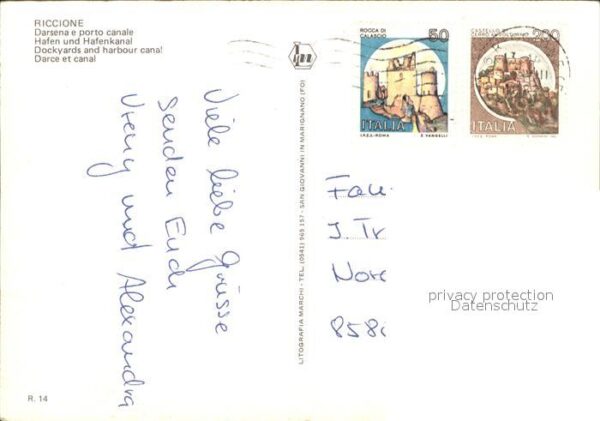 RICCIONE
Darsena e porto canale
Hafen und Hafenkanal
Dockyards and harbour canal
Darce et canal
ROCCA DI
CALASCIO
50
ITALIA
I.P.Z.S.-ROMA E. VANGELLI
200
ITALIA
Viele liebe Grüsse
Senden Euch
Vreny und Alexandra
LITOGRAFIA MARCHI - TEL. (0541) 965 157 - SAN GIOVANNI IN MARIGNANO (FO)
Fam.
J. Tr
Nore
858
privacy protection
Datenschutz
R. 14